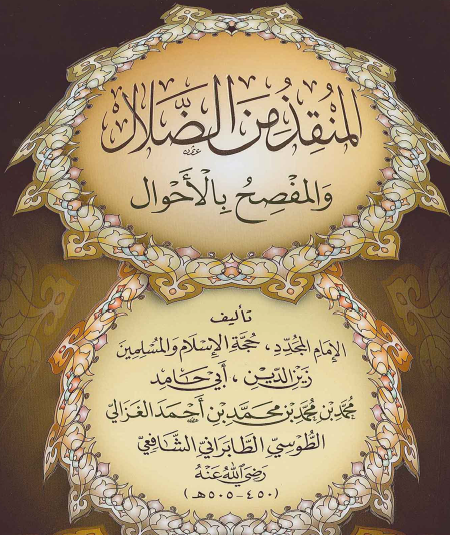 المُنْقِذُ مِنَ الضَّلَال
وَالمُفْصِحُ بِالأَحْوَال
تأليف
الإمام المجدّد ، حُجَّة الإسلام والمسلمين
زين الدّين ، أبي حامد
محمّد بن محمّد بن محمّد بن أحمد الغزالي
الطُّوسيّ الطَّابرانيّ الشَّافعيّ
رضي الله عنه
(٤٥٠-٥٠٥هـ)